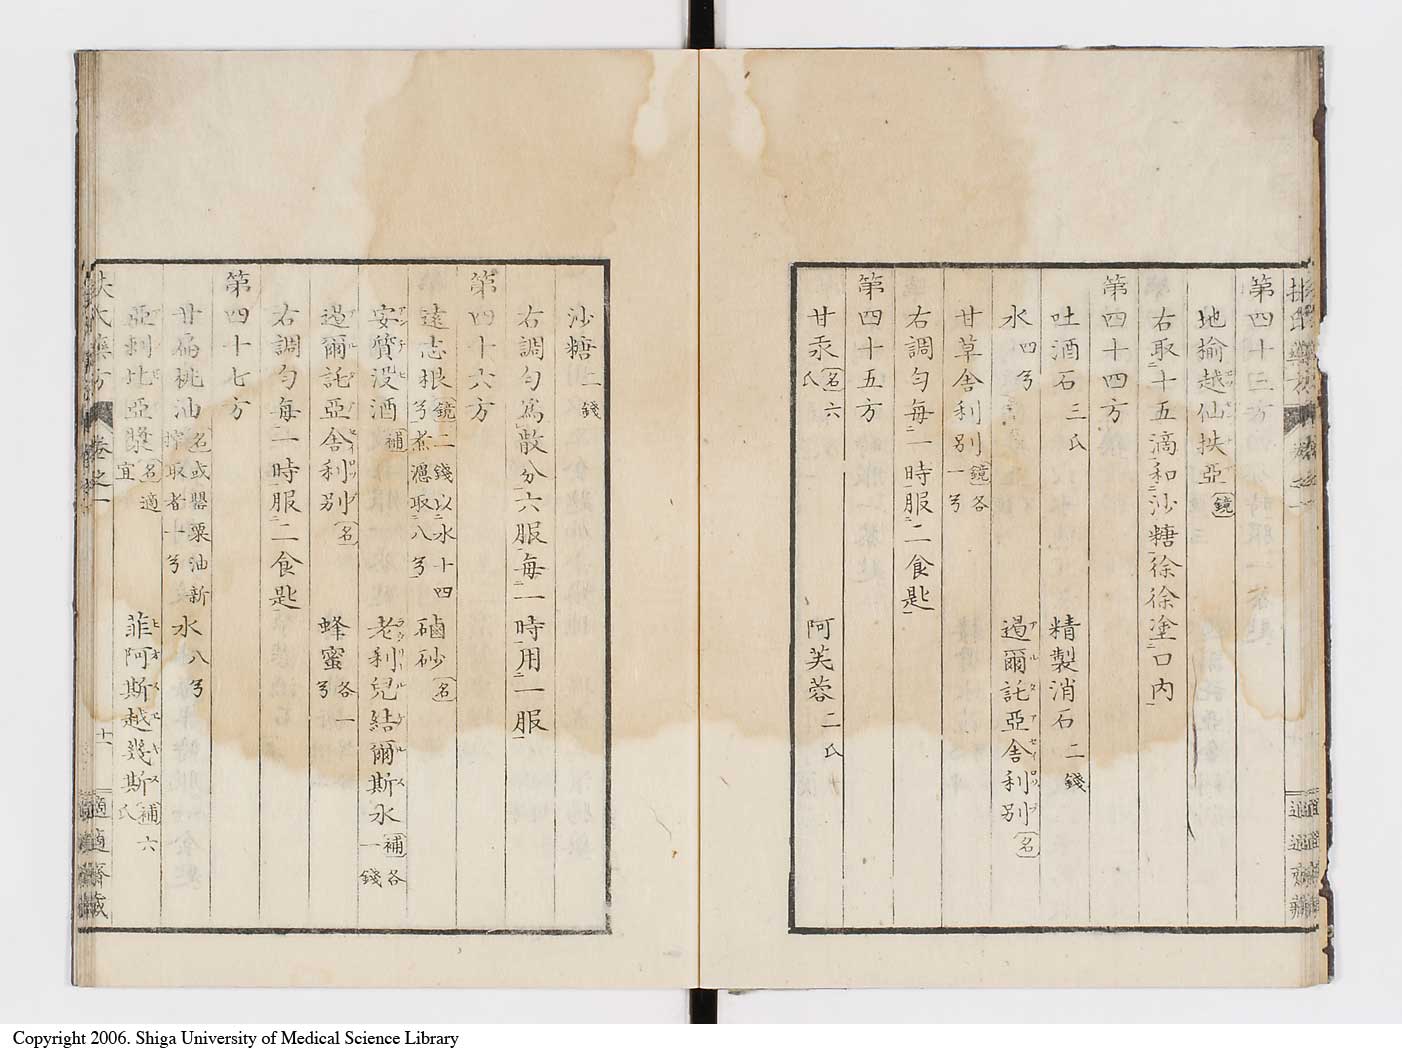 第四十三方
地揄越仙扶亞 鏡
右取二十五滴和沙糖徐徐塗口內
第四十四方
吐酒石 三氏 精製消石 二錢
水 四弓 過爾託亞舍利別 名
甘草舍利別 鏡各一弓
右調勻每二一時服二食匙
第四十五方
甘汞 名六氏 阿芙蓉 二氏
沙糖 二錢
右調勻爲散分六服每二一時用一服
第四十六方
遠志根 鏡二錢以水十四弓煮濾取八弓 磠砂 名
安質没酒 補 老利兒結爾斯水 補各一錢
過爾託亞舍利別 名 蜂蜜 各一弓
右調勻每二一時服二食匙
第四十七方
甘扁桃油 名或罌粟油新搾取者十弓 水 八弓
亞剌比亞漿 名適宜 菲阿斯越幾斯 補六氏
扶氏藥方 卷之一 十一 適適齋藏
Copyright 2006. Shiga University of Medical Science Library